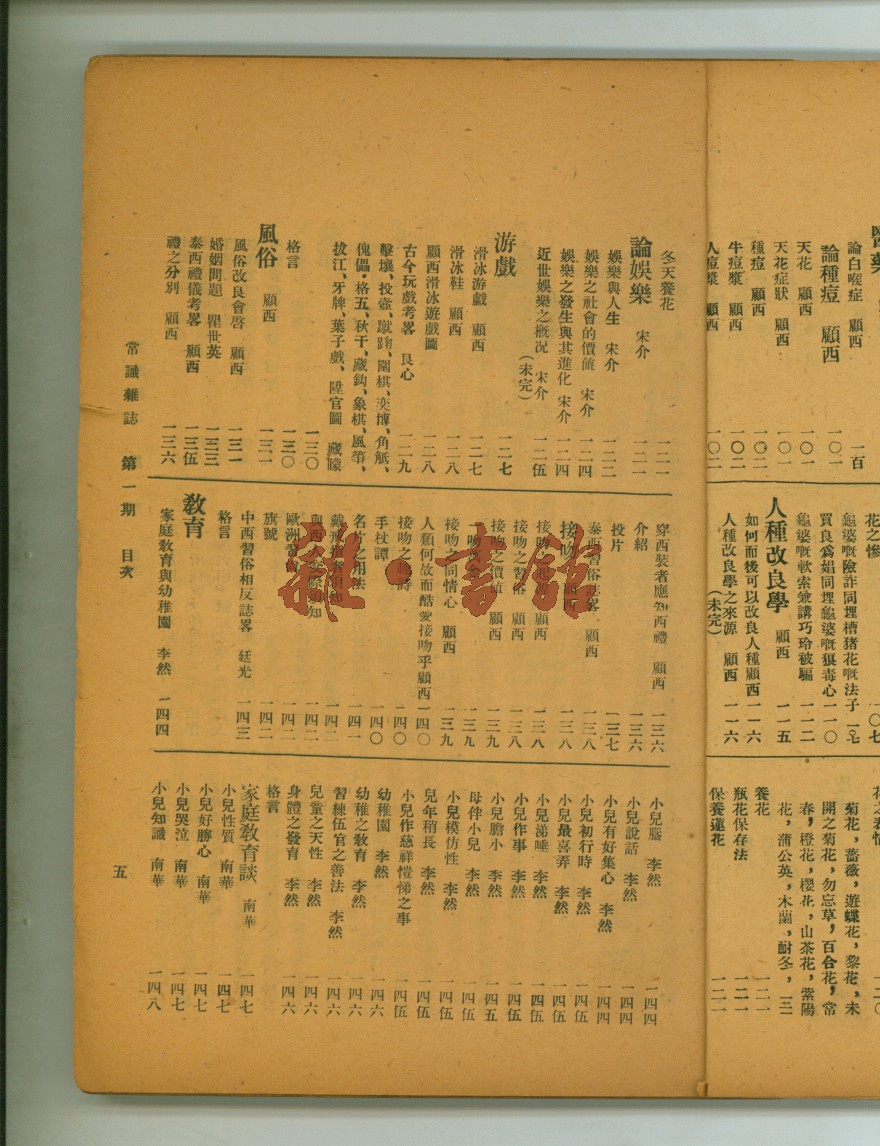 醫藥
論白喉症 顧西 一百
論種痘 顧西 一〇一
天花 顧西 一〇一
天花症狀 顧西 一〇一
種痘 顧西 一〇二
牛痘漿 顧西 一〇二
人痘漿 顧西 一〇二
花之慘 一〇七
龜婆嘅險詐同埋槽猪花嘅法子 一〇七
買良爲娼同埋龜婆嘅狠毒心 一一〇
龜婆嘅軟索兼講巧玲被騙 一一二
人種改良學 顧西 一一五
如何而後可以改良人種 顧西 一一六
人種改良學之來源 顧西 一一六
(未完)
菊花,薔薇,遊蝶花,黎花,未
開之菊花,勿忘草,百合花,常
春,橙花,櫻花,山茶花,紫陽
花,蒲公英,木蘭,耐冬,
養花 一二一
瓶花保存法 一二一
保養蓮花 一二一
冬天養花 一二一
論娛樂 宋介 一二一
娛樂與人生 宋介 一二二
娛樂之社會的價值 宋介 一二四
娛樂之發生與其進化 宋介 一二四
近世娛樂之概况 宋介 一二伍
(未完)
游戲 一二七
滑冰游戲 顧西 一二七
滑冰鞋 顧西 一二八
顧西滑冰遊戲圖 一二八
古今玩戲考畧 良心 一二九
擊壤、投壺、蹴踘、圍棋、奕博、角觝、
傀儡・格五、秋千、藏鈎、象棋、風箏、
拔江、牙牌、葉子戲、陞官圖 藏矇
一三〇
格言 一三〇
風俗 顧西 一三一
風俗改良會啓 顧西 一三一
婚姻問題 瞿世英 一三三
泰西禮儀考畧 顧西 一三伍
禮之分別 顧西 一三六
穿西裝者應知西禮 顧西 一三六
介紹 一三六
投片 一三七
泰西習俗誌畧 顧西 一三八
接吻 顧西 一三八
接吻 顧西 一三八
接吻之習俗 顧西 一三八
接吻之價值 顧西 一三九
一三九
接吻之同情心 顧西 一三九
人類何故而酷愛接吻乎 顧西 一四〇
接吻之 一四〇
手杖譚 一四〇
名片之用法 一四一
戴戒指者須知 一四二
與西人交際須知 一四二
歐洲習俗 一四二
旗號 一四二
中西習俗相反誌畧 廷光 一四三
格言
敎育
家庭敎育與幼稚園 李然 一四四
小兒腦 李然 一四四
小兒說話 李然 一四四
小兒有好集心 李然 一四四
小兒初行時 李然 一四伍
小兒最喜弄 李然 一四伍
小兒涕唾 李然 一四伍
小兒作事 李然 一四伍
小兒膽小 李然 一四五
母伴小兒 李然 一四伍
小兒模仿性 李然 一四伍
兒年稍長 李然 一四伍
小兒作慈祥愷悌之事 一四伍
幼稚園 李然 一四六
幼稚之敎育 李然 一四六
習練伍官之善法 李然 一四六
兒童之天性 李然 一四六
身體之發育 李然 一四六
格言
家庭敎育談 南華 一四七
小兒性質 南華 一四七
小兒好勝心 南華 一四七
小兒哭泣 南華 一四七
小兒知識 南華 一四八
常識雜誌 第一期 目次
五
雅・書館